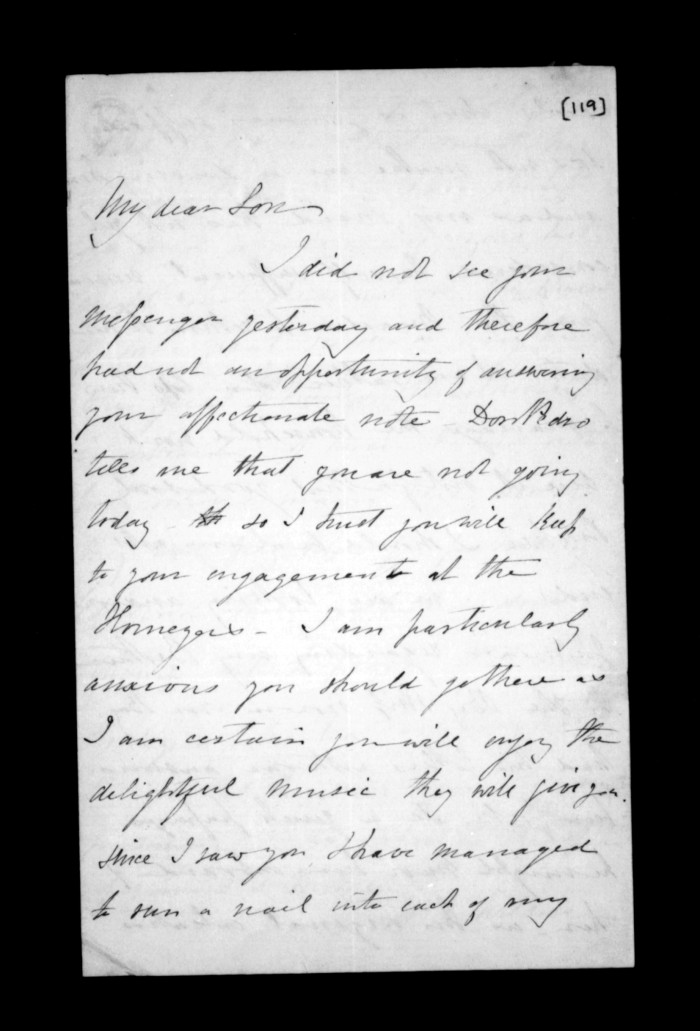 [119]
My dear Son
I did not see your
messenger yesterday and therefore
had not an opportunity of answering
your affectionate note - Don Pedro
tells me that you are not going
today - th so I trust you will keep
to your engagement at the
I am particularly
anxious you should go there as
I am certain you will enjoy the
delightful music they will give you.
Since I saw you I have managed
to run a nail into each of my